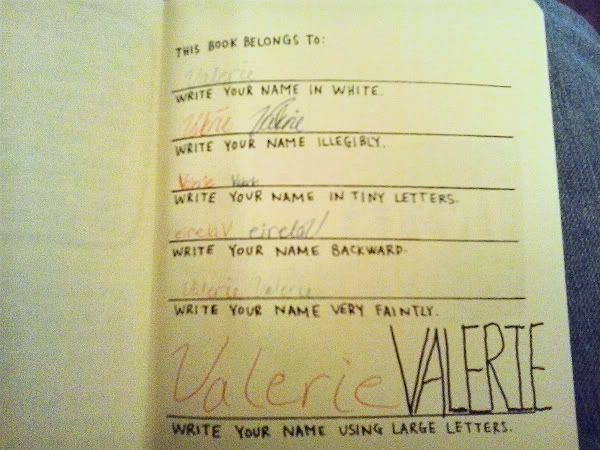 THIS BOOK BELONGS TO:
Valerie
WRITE YOUR NAME IN WHITE.
Valerie Valerie
WRITE YOUR NAME ILLEGIBLY.
Valerie Valerie
WRITE YOUR NAME IN TINY LETTERS.
eirelaV eirelaV
WRITE YOUR NAME BACKWARD.
Valerie Valerie
WRITE YOUR NAME VERY FAINTLY.
Valerie VALERIE
WRITE YOUR NAME USING LARGE LETTERS.